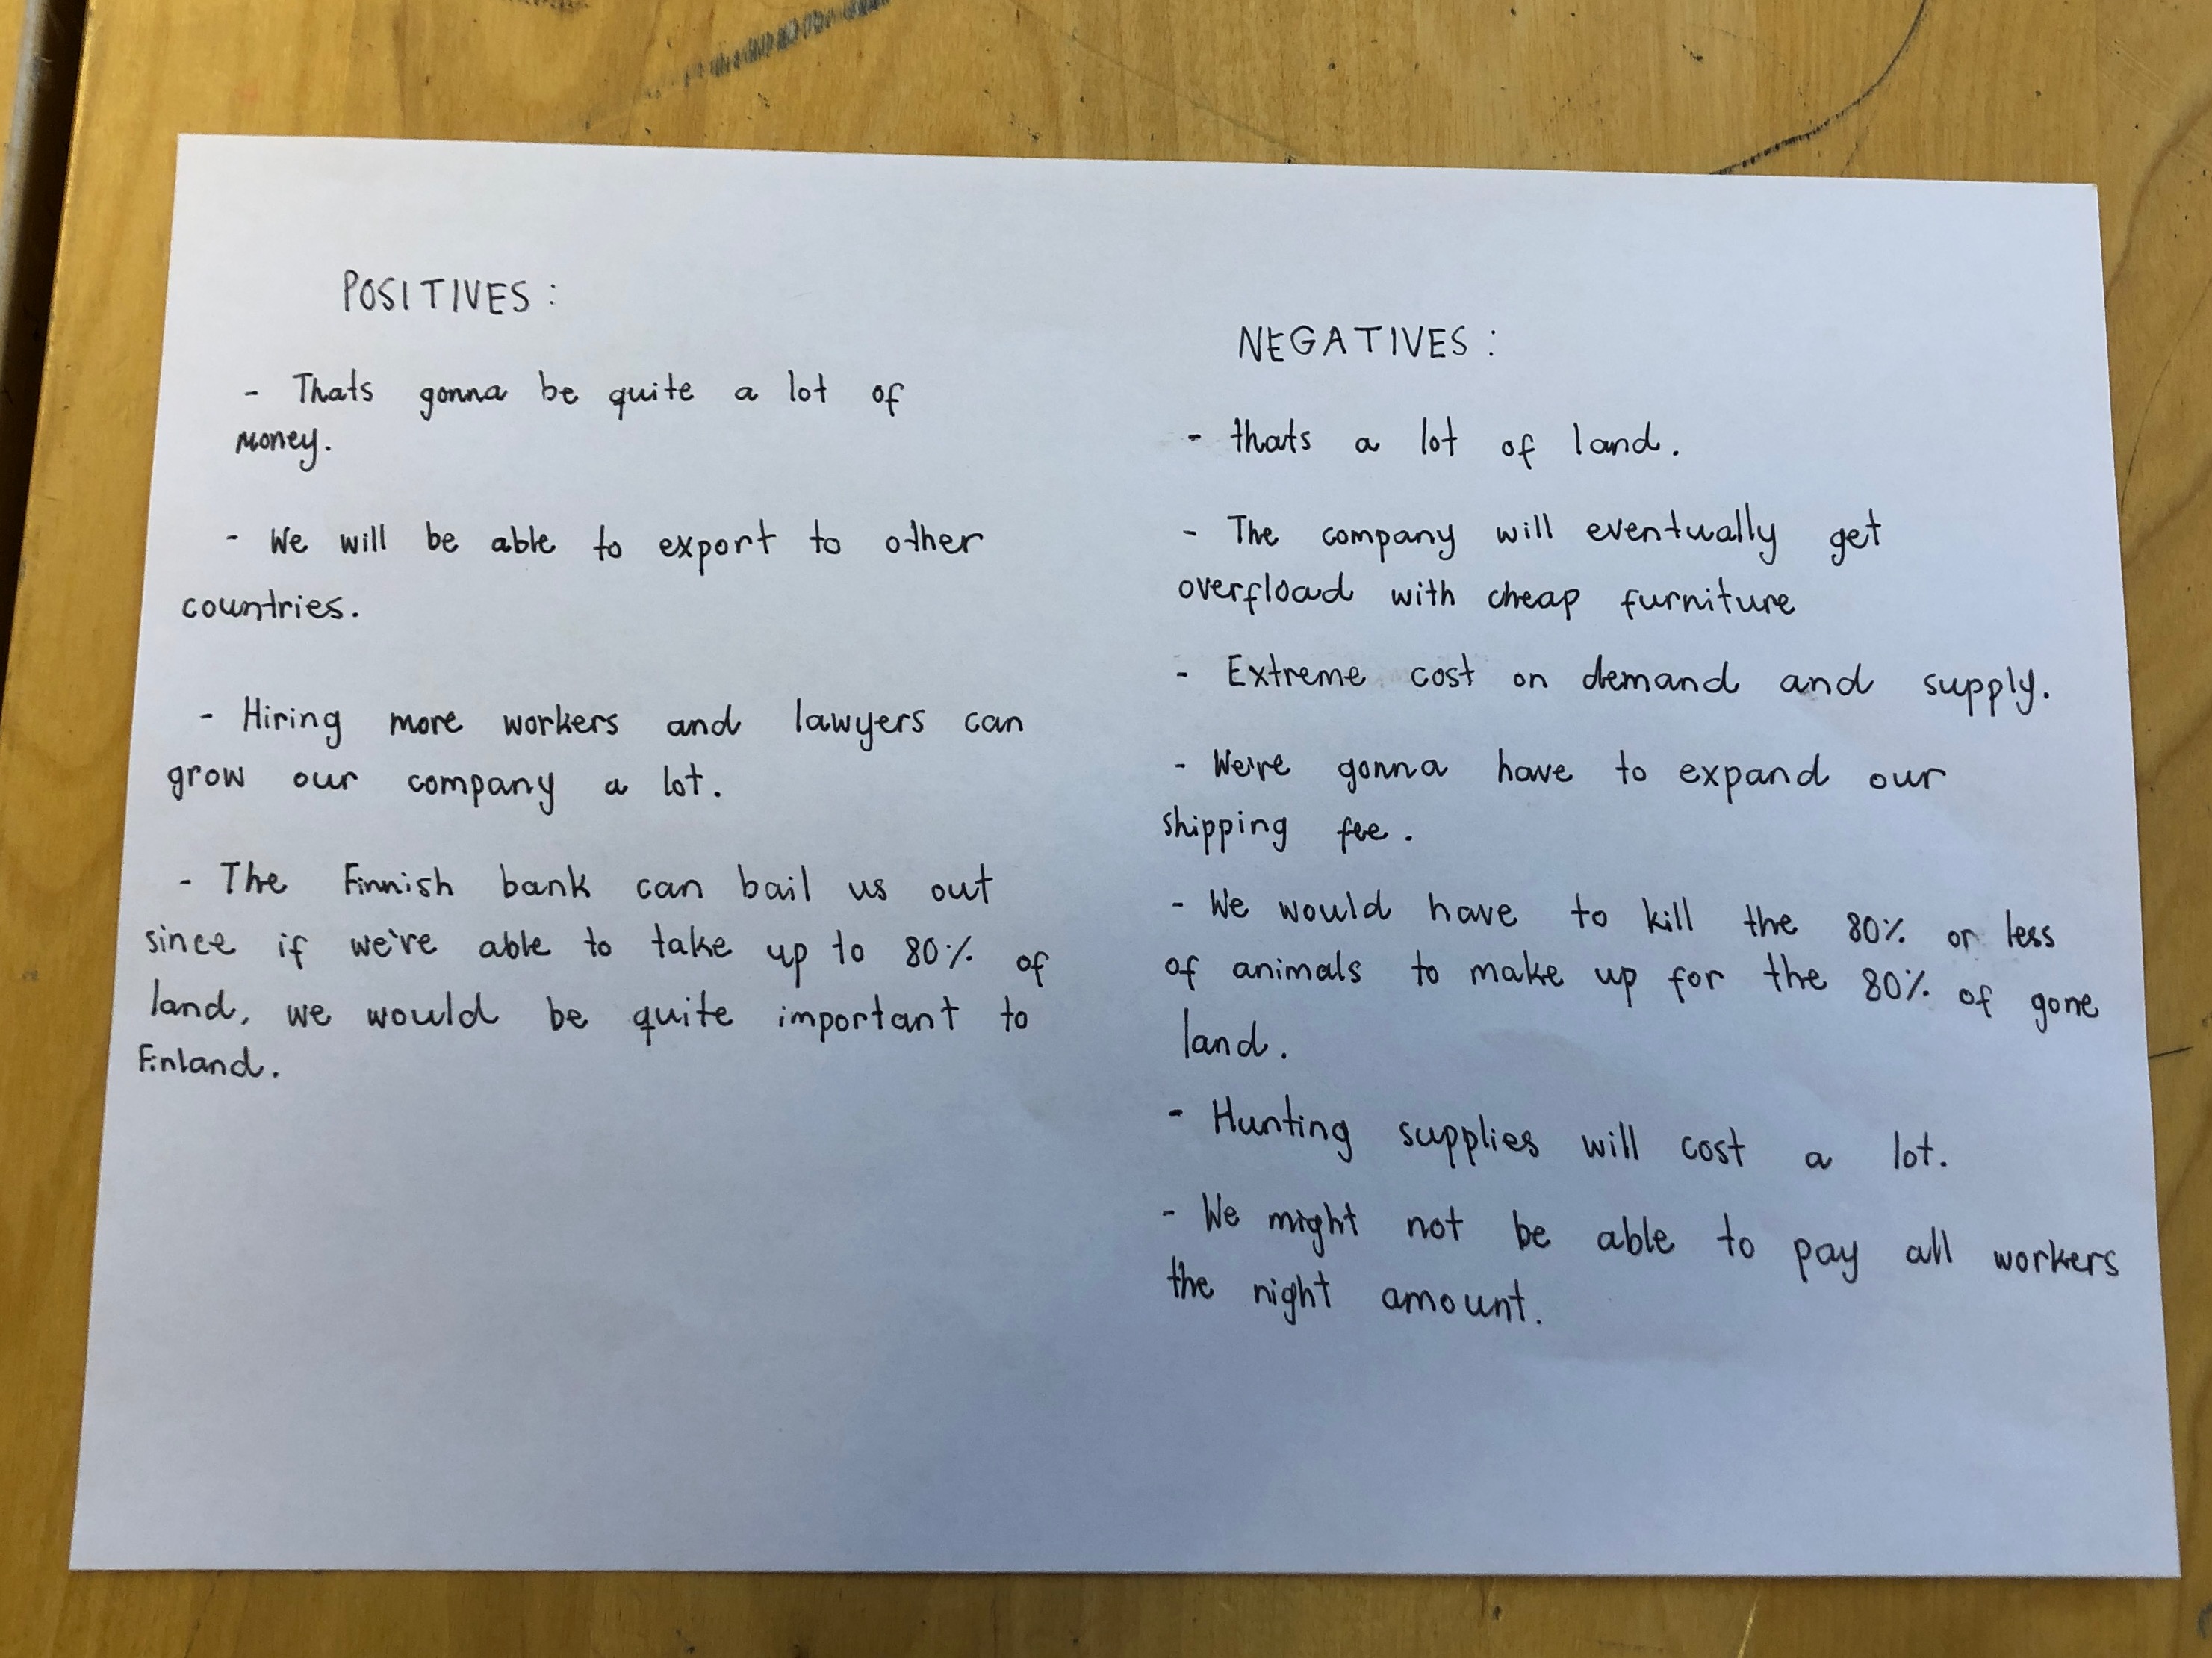 POSITIVES :
- Thats gonna be quite a lot of
money.
- We will be able to export to other
countries.
- Hiring more workers and lawyers can
grow our company a lot.
- The Finnish bank can bail us out
since if we're able to take up to 80% of
land, we would be quite important to
Finland.
NEGATIVES :
- thats a lot of land.
- The company will eventually get
overfload with cheap furniture
- Extreme cost on demand and supply.
- We're gonna have to expand our
shipping fee.
- We would have to kill the 80% or less
of animals to make up for the 80% of gone
land.
- Hunting supplies will cost a lot.
- We might not be able to pay all workers
the right amount.